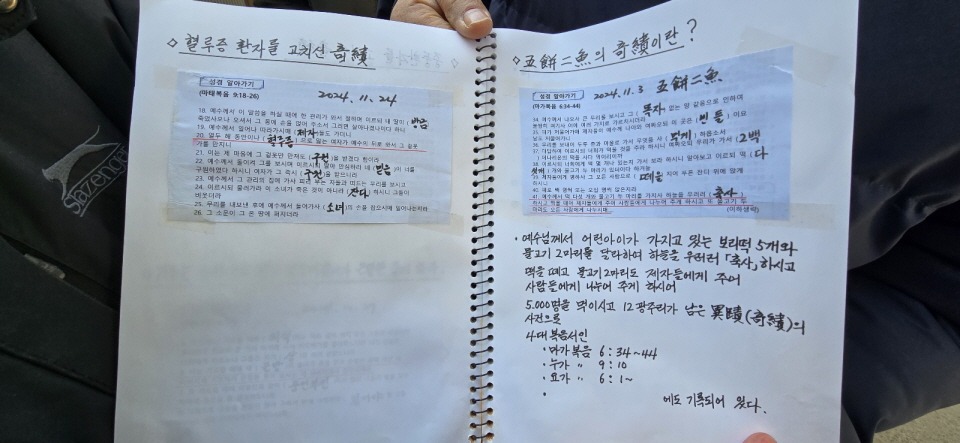 ◇ 혈루증 환자를 고치신 奇績
성경 알아가기
2024. 11. 24
(마태복음 9:18-26)
18. 예수께서 이 말씀을 하실 때에 한 관리가 와서 절하며 이르되 내 딸이 ( 방금
죽었사오나 오셔서 그 몸에 손을 얹어 주소서 그러면 살아나겠나이다 하니
19. 예수께서 일어나 따라가시매 ( 제자 )들도 가더니
20. 열두 해 동안이나 ( 혈루증 )으로 앓는 여자가 예수의 뒤로 와서 그 겉옷
가를 만지니
21. 이는 제 마음에 그 겉옷만 만져도 ( 구원 )을 받겠다 함이라
22. 예수께서 돌이켜 그를 보시며 이르시되 딸아 안심하라 네 ( 믿음 )이 너를
구원하였다 하시니 여자가 그 즉시 ( 구원 )을 받으니라
23. 예수께서 그 관리의 집에 가사 피리 부는 자들과 떠드는 무리를 보시고
24. 이르시되 물러가라 이 소녀가 죽은 것이 아니라 ( 잔다 ) 하시니 그들이
비웃더라
25. 무리를 내보낸 후에 예수께서 들어가사 ( 소녀 )의 손을 잡으시매 일어나는지라
26. 그 소문이 그 온 땅에 퍼지더라
Slazenger
◇ 五餠二魚의 奇績이란?
성경 알아가기
2024. 11. 3 五餠二魚
(마가복음 6:34-44)
34. 예수께서 나오사 큰 무리를 보시고 그 ( 목자 ) 없는 양 같음으로 인하여
불쌍히 여기사 이에 여러 가지로 가르치시더라
35. 때가 저물어가매 제자들이 예수께 나아와 여짜오되 이 곳은 ( 빈 들 ) 이요
날도 저물어가니
36. 무리를 보내어 두루 촌과 마을로 가서 무엇을 사 ( 먹게 ) 하옵소서
37. 대답하여 이르시되 너희가 먹을 것을 주라 하시니 여짜오되 우리가 가서 ( 2백
) 데나리온의 떡을 사다 먹이리이까
38. 이르시되 너희에게 떡 몇 개나 있는지 가서 보라 하시니 알아보고 이르되 떡 ( 다
섯 개 )
39. 제자들에게 명하사 그 모든 사람으로 ( 떼를 ) 지어 푸른 잔디 위에 앉게
하시니
40. 떼로 백 명씩 또는 오십 명씩 앉은지라
41. 예수께서 떡 다섯 개와 물고기 두 마리를 가지사 하늘을 우러러 ( 축사 )
하시고 떡을 떼어 제자들에게 주어 사람들에게 나누어 주게 하시고 또 물고기 두
마리도 모든 사람에게 나누시매
(이하생략)
• 예수님께서 어린아이가 가지고 있는 보리떡 5개와
물고기 2마리를 달라하여 하늘을 우러러 「축사」하시고
떡을 떼고 물고기 2마리도 제자들에게 주어
사람들에게 나누어 주게 하시어
5.000명을 먹이시고 12 광주리가 남은 異蹟(奇績)의
사건으로
4대 복음서인
• 마가복음 6 : 34~44
• 누가 〃 9 : 10
• 요가 〃 6 : 1~
•
에도 기록되어 있다.